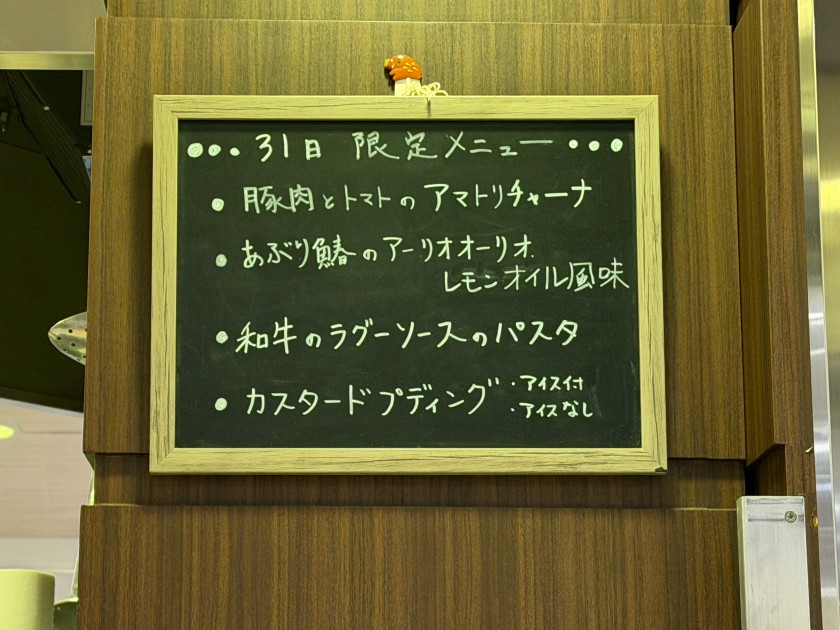 ●●• 31日 限定メニュー •●●
● 豚肉とトマトのアマトリチャーナ
● あぶり鰆のアーリオオーリオ
レモンオイル風味
● 和牛のラグーソースのパスタ
● カスタードプディング
・アイス付
・アイスなし